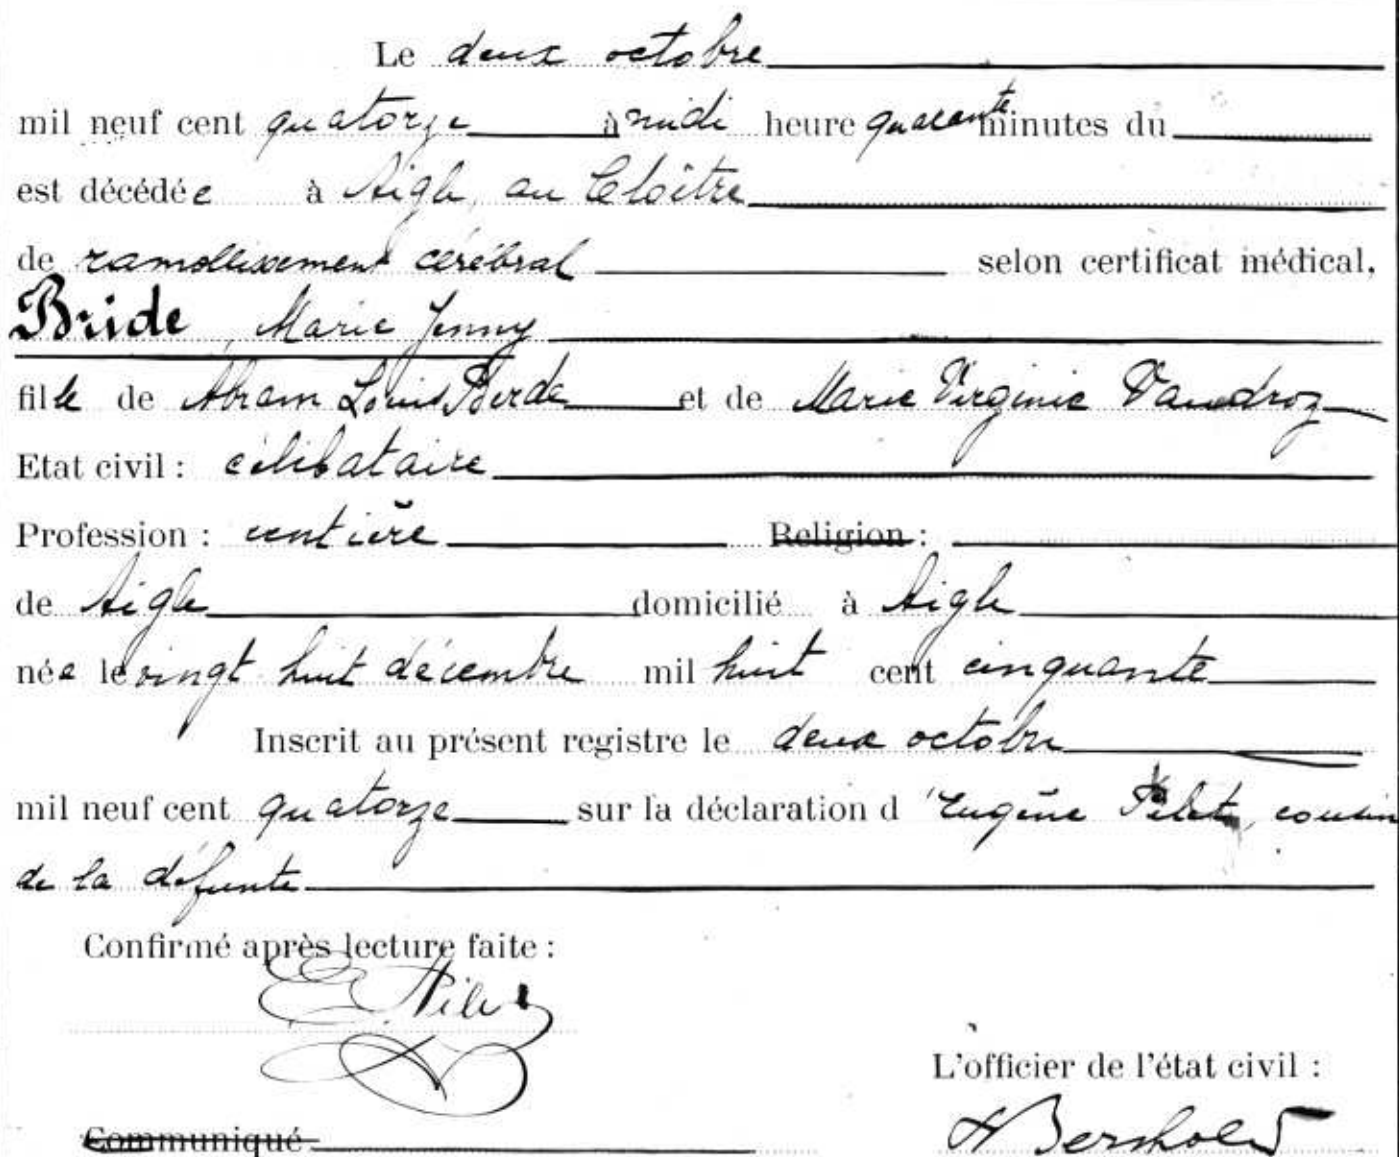 Le deux octobre
mil neuf cent quatorze à midi heure quarante minutes du
est décédée à Aigle, au Cloître
de ramollissement cérébral selon certificat médical,
Bride, Marie Jenny
fille de Abram Louis et de Marie Virginie Vaudroz
Etat civil : célibataire
Profession : rentière Religion :
de Aigle domicilié à Aigle
née le vingt huit décembre mil huit cent cinquante
Inscrit au présent registre le deux octobre
mil neuf cent quatorze sur la déclaration d'Eugène Pilet, cousin
de la défunte
Confirmé après lecture faite :
E Pilet
L'officier de l'état civil :
Communiqué